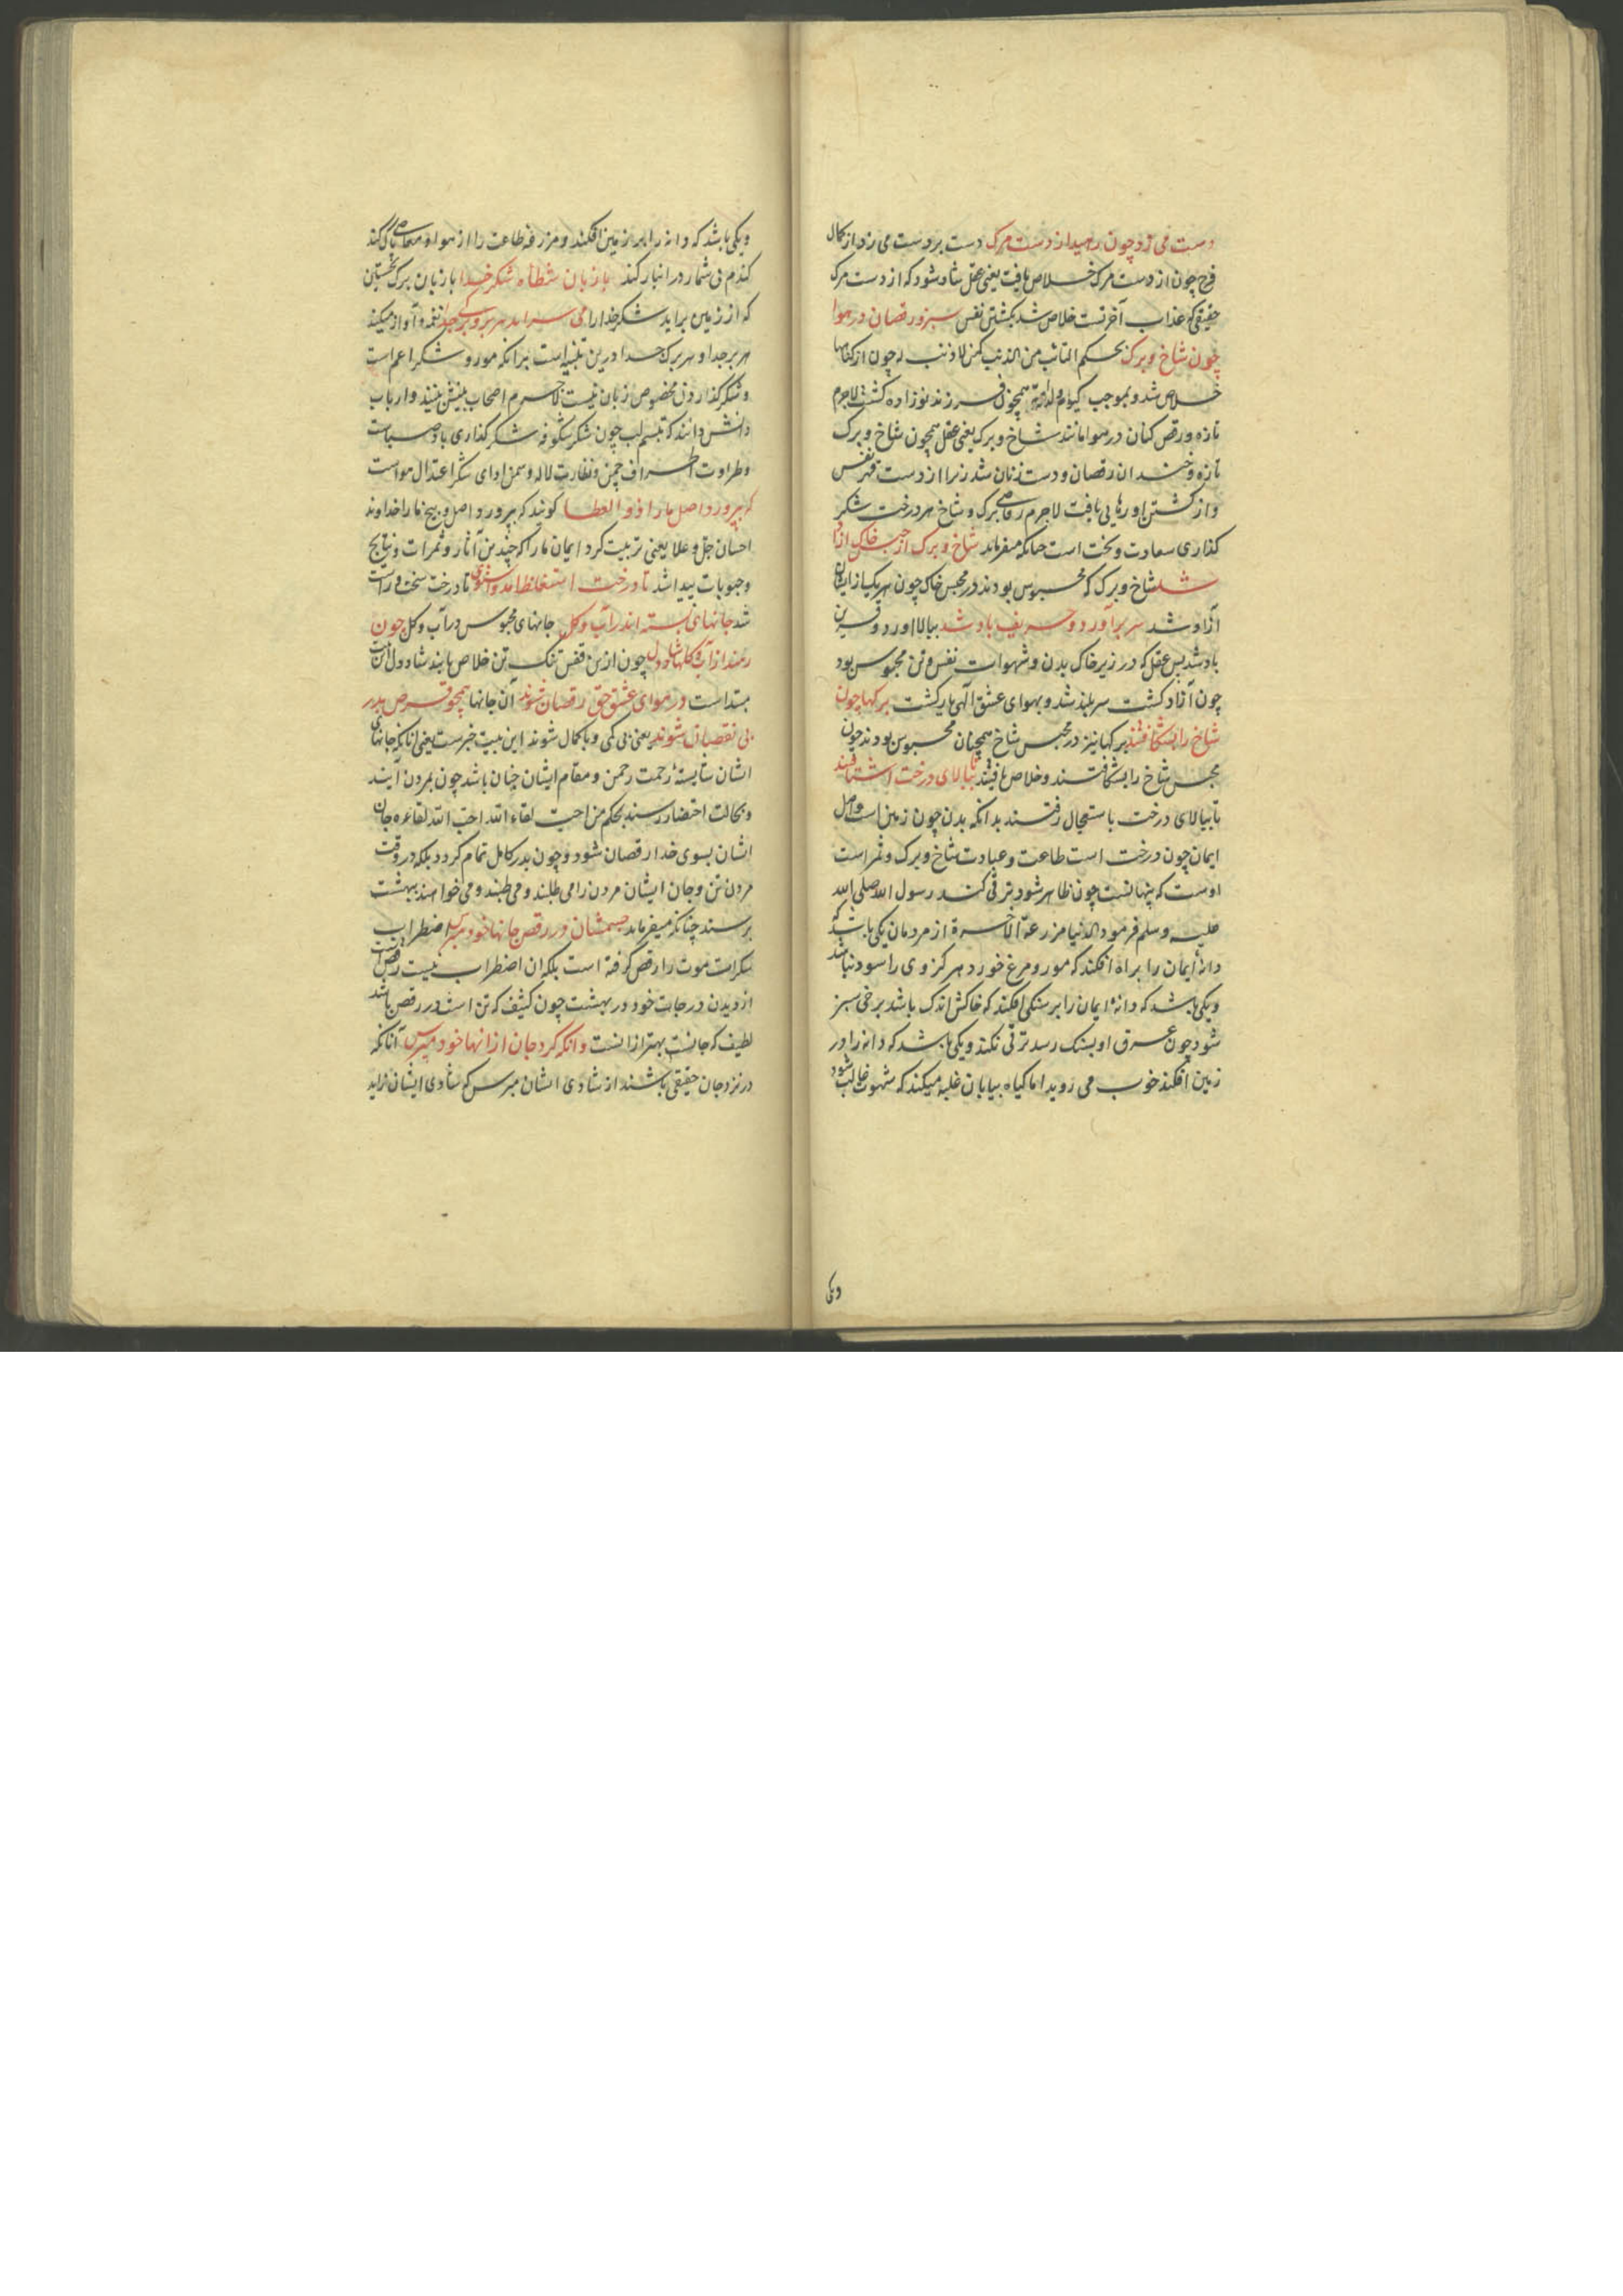 دست می زد چون رهید از دست مرک دست بر دست می زد از کمال
فرح چون از دست مرک خلاص یافت یعنی عقل شاد شود که از دست مرک
حقیقی که عذاب آخرتست خلاص شد بکشتن نفس سبز و رقصان در هوا
چون شاخ و برک بحکم التائب من الذنب کمن لا ذنب له چون از کناهها
خلاص شد و بموجب کیوم ولدته امه همچون فرزند نوزاده کشت لاجرم
تازه و رقص کنان در هوا مانند شاخ و برک یعنی عقل همچون شاخ و برک
تازه و خندان رقصان و دست زنان شد زیرا از دست قهر نفس
و از کشتن او رهایی یافت لاجرم رقاصی برک و شاخ هر درخت شکر
کذاری سعادت و بخت است چنانکه میفرماید شاخ و برک از حبس خاک آزاد
شد شاخ و برک که محبوس بودند در محبس خاک چون هر یک از ایشان
آزاد شد سر برآورد و حریف باد شد ببالا آورد و قرین
باد شد پس عقل که در زیر خاک بدن و شهوات نفس و تن محبوس بود
چون آزاد کشت سربلند شد و بهوای عشق الهی یار کشت برکها چون
شاخ را بشکافتند برکها نیز در محبس شاخ همچنان محبوس بودند چون
محبس شاخ را بشکافتند و خلاص یافتند تا ببالای درخت اشتافتند
تا ببالای درخت باستعجال رفتند بدانکه بدن چون زمین است و اصل
ایمان چون درخت است طاعت و عبادت شاخ و برک و ثمر است
اوست که پنهانست چون ظاهر شود ترقی کند رسول الله صلی الله
علیه وسلم فرمود الدنیا مزرعة الآخرة از مردمان یکی باشد که
دانهٔ ایمان را براه افکند که مور و مرغ خورد هرکز وی را سود نباشد
و یکی باشد که دانهٔ ایمان را بر سنکی افکند که خاکش اندک باشد برخی سبز
شود چون عرق او بسنک رسد ترقی نکند و یکی باشد که دانه را در
زمین افکند خوب می روید اما کیاه بیابان غلبه میکند که شهوت غالب شود
ویکی
ویکی باشد که دانه را بر زمین افکند و مزرعه طاعت را از هوا و معاصی پاک کند
کندم بی شمار در انبار کند با زبان شطأه شکر خدا با زبان برک نخستین
که از زمین برآید شکر خدا را می سراید هر بر و برک جدا نغمه و آواز میکند
هر بر جدا و هر برک جدا درین تنبیه است برانکه مورد شکر اعم است
و شکر کذاردن مخصوص زبان نیست لاجرم اصحاب بینش بینند و ارباب
دانش دانند که تبسم لب چون شکر شکوفه شکر کذاری باد صباست
و طراوت اطراف چمن و نضارت لاله و سمن ادای شکر اعتدال هواست
که بپرورد اصل ما را ذو العطا کویند که بپرورد اصل و بیخ ما را خداوند
احسان جل و علا یعنی تربیت کرد ایمان ما را که چندین آثار و ثمرات و نتایج
و حبوبات پیدا شد تا درخت استغلظ آمد و استوی تا درخت سخت و راست
شد جانهای بسته اندر آب و کل جانهای محبوس در آب و کل چون
رهند از آب و کلها شاد دل چون ازین قفس تنک تن خلاص یابند شاد دل این بیت
مبتداست در هوای عشق حق رقصان شوند آن جانها همچو قرص بدر
بی نقصان شوند یعنی بی کمی و با کمال شوند این بیت خبرست یعنی آنانکه جانهای
ایشان شایستهٔ رحمت رحمن و مقام ایشان چنان باشد چون بمردن آیند
و بحالت احتضار رسند بحکم من احب لقاء الله احب الله لقاءه جان
ایشان بسوی خدا رقصان شود و چون بدر کامل تمام کردد بلکه در وقت
مردن تن و جان ایشان مردن را می طلبند و می طپند و می خواهند ببهشت
برسند چنانکه میفرماید جسمشان در رقص جانها خود مپرس اضطراب
سکرات موت را رقص کرفته است بلکه آن اضطراب نیست رقص است
از دیدن درجات خود در بهشت چون کثیف که تن است در رقص باشد
لطیف که جانست بهتر از انست وانکه کرد جان از انها خود مپرس آنانکه
در نزد جان حقیقی باشند از شادی ایشان مپرس که شادی ایشان زاید